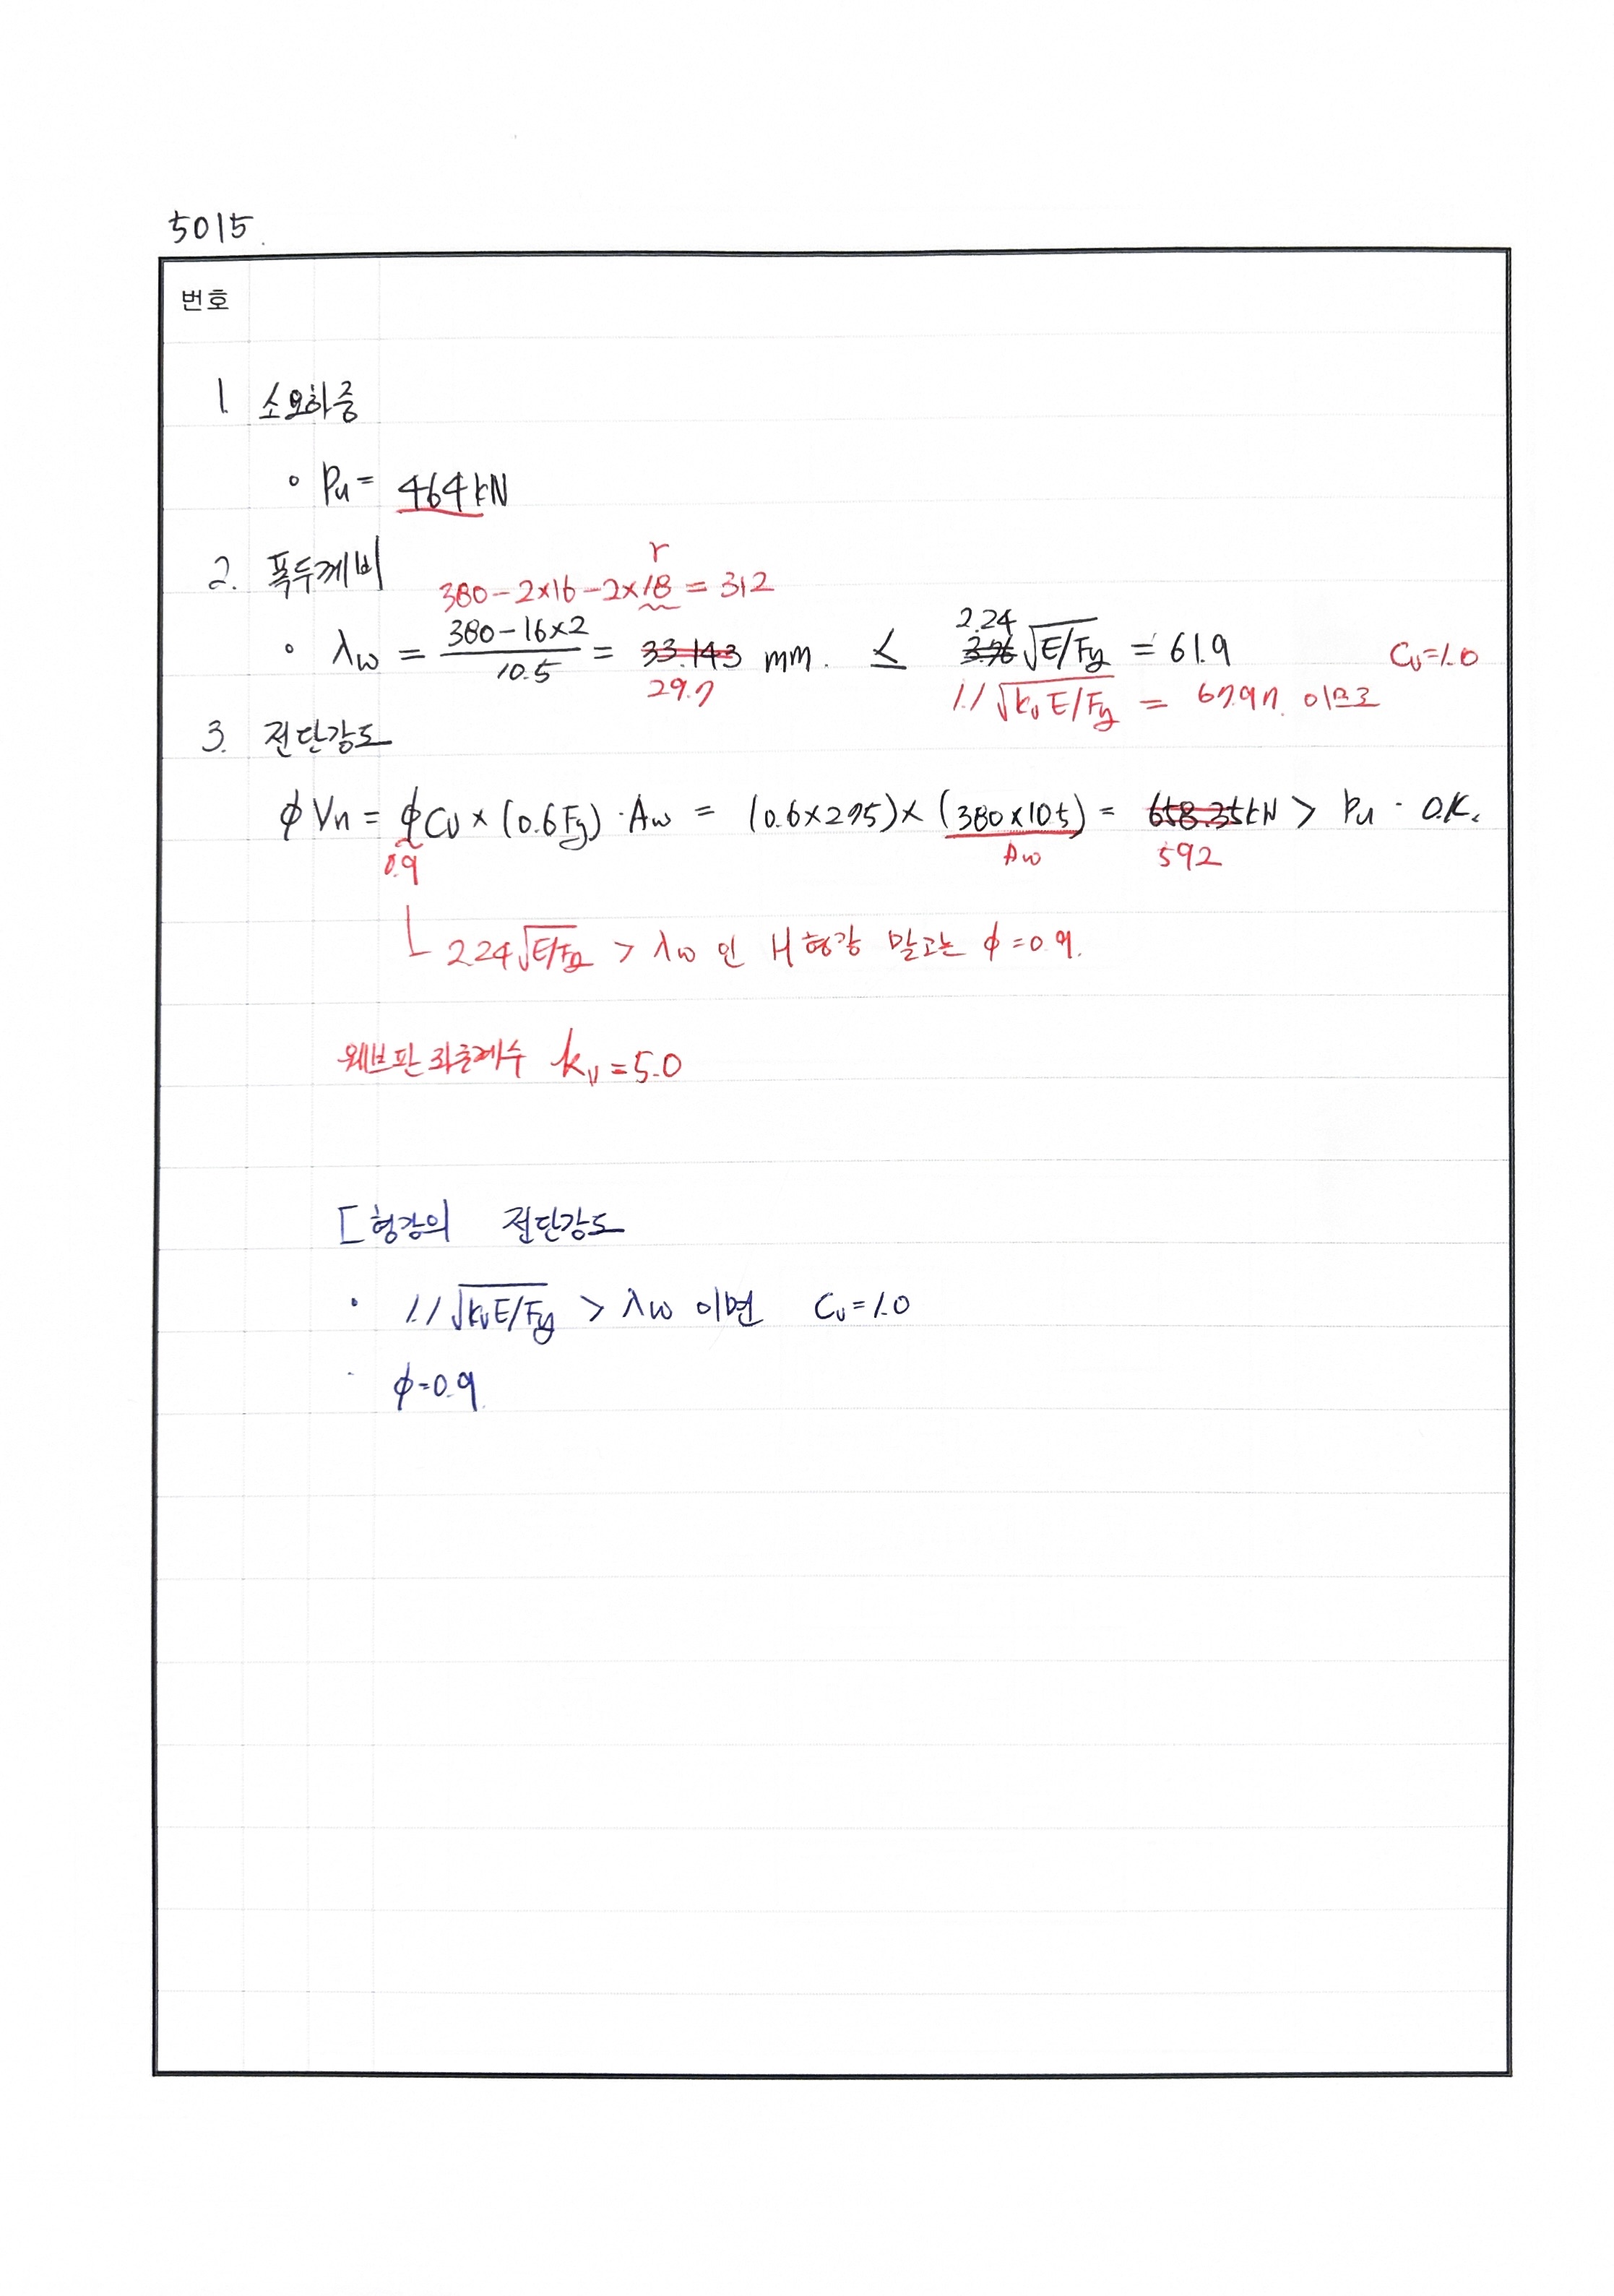 5015.
번호
1. 소요하중
◦ Pu = 464kN
2. 폭두께비
r
380-2×16-2×18 = 312
◦ λw = (380-16×2)/10.5 = 33.143 mm. ≤ 3.76 2.24 √E/Fy = 61.9 Cv=1.0
29.7 1.1√kvE/Fy = 67.97 이므로
3. 전단강도
ϕVn = ϕCv × (0.6Fy)·Aw = (0.6×275)×(380×10.5) = 658.35kN > Pu · O.K.
0.9 Aw 592
2.24√E/Fy > λw 인 H형강 말고는 ϕ=0.9.
웨브판좌굴계수 kv=5.0
ㄷ형강의 전단강도
· 1.1√kvE/Fy > λw 이면 Cv=1.0
· ϕ=0.9.